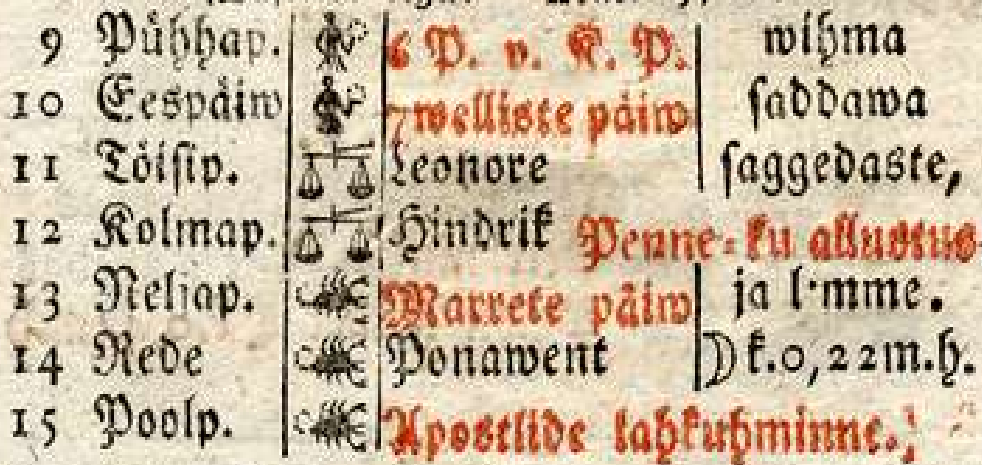 9 Pühhap. 6 P. v. K. P. wihma
10 Eespäiw 7welliste päiw saddawa
11 Töisip. Leonore saggedaste,
12 Kolmap. Hindrik Penne-ku allustus
13 Neljap. Marrete päiw ja l mme.
14 Rede Ponawent ☽ k.0,22m.h.
15 Poolp. Apostlide lahkuhminne.